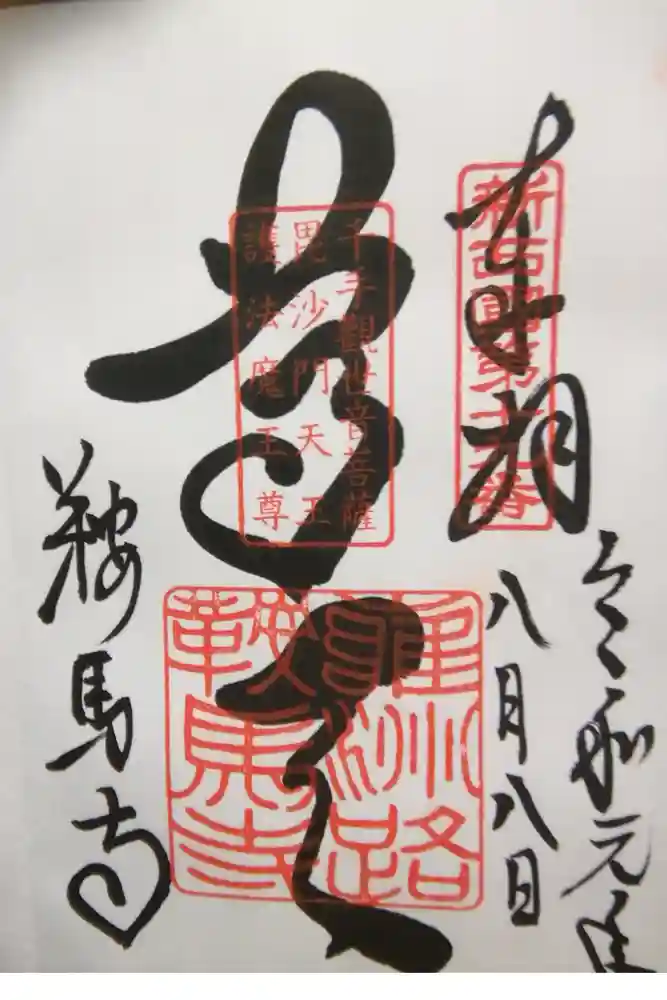 奉拝
新西国第十九番
令和元年
八月八日
尊天
千手觀世音菩薩
毘沙門天王
護法魔王尊
雍洲路
鞍馬寺
鞍馬寺